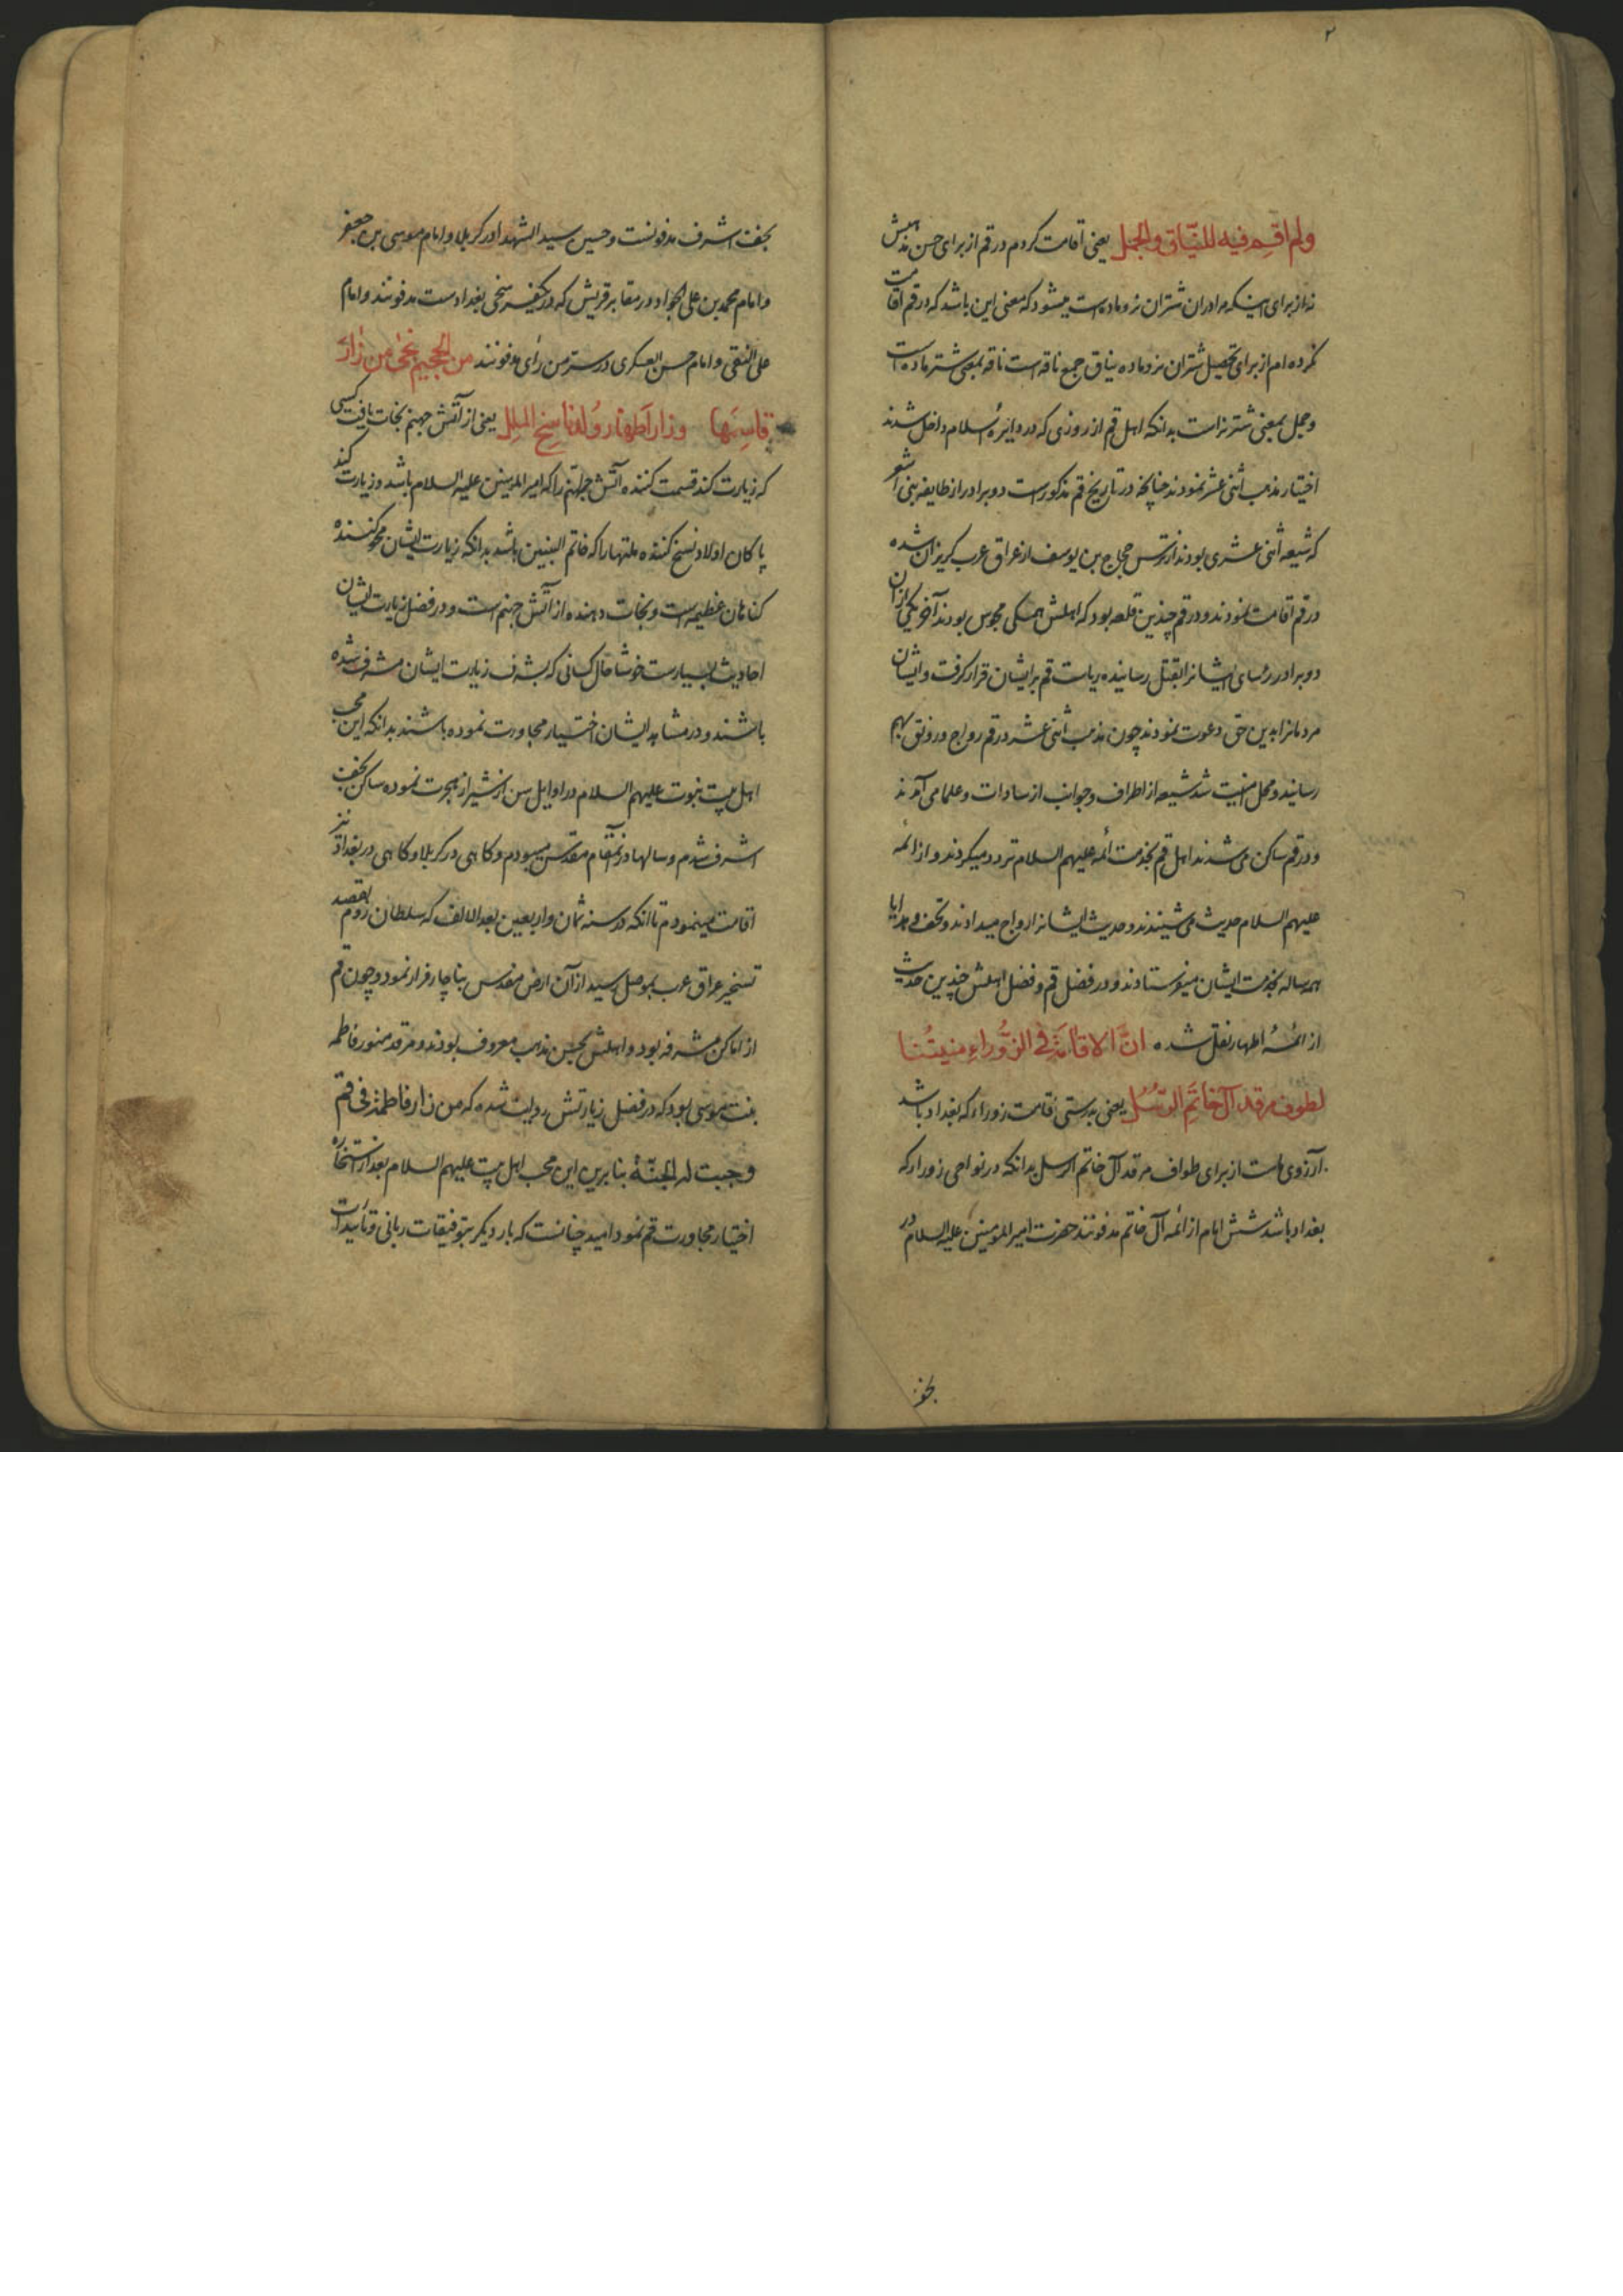 ۲
ولم اقم فیه للنیاق والجمل یعنی اقامت کردم در قم از برای حسن مذهبش
نه از برای اینکه در ان شتران نر و ماده است میشود که معنی این باشد که در قم اقامت
نکرده ام از برای تحصیل شتران نر و ماده نیاق جمع ناقه است ناقه بمعنی شتر ماده است
و جمل بمعنی شتر نر است بدانکه اهل قم از روزی که در دایرهٔ اسلام داخل شدند
اختیار مذهب اثنی عشر نمودند چنانچه در تاریخ قم مذکور است دو برادر از طایفه بنی اشعر
که شیعه اثنی عشری بودند از ترس حجاج بن یوسف از عراق عرب گریزان شده
در قم اقامت نمودند و در قم چندین قلعه بود که اهلش همگی مجوس بودند آخر یکی از ان
دو برادر رئسای ایشانرا بقتل رسانیده ریاست قم بر ایشان قرار گرفت و ایشان
مردمانرا بدین حق دعوت نمودند چون مذهب اثنی عشر در قم رواج و رونق بهم
رسانید و محل امنیت شد شیعه از اطراف و جوانب از سادات و علما می آمدند
و در قم ساکن می شدند اهل قم بخدمت ائمه علیهم السلام تردد میکردند و از ائمه
علیهم السلام حدیث می شنیدند و حدیث ایشانرا رواج میدادند و تحف و هدایا
همه ساله بخدمت ایشان میفرستادند و در فضل قم و فضل اهلش چندین حدیث
از ائمهٔ اطهار نقل شده انّ الاقامة فی الزّوراءِ منیتُنا
لطوف مرقد آل خاتَمِ الرّسُلِ یعنی بدرستی اقامت زوراء که بغداد باشد
آرزوی ماست از برای طواف مرقد آل خاتم الرسل بدانکه در نواحی زوراء که
بغداد باشد شش امام از ائمه آل خاتم مدفونند حضرت امیر المومنین علیه السلام در
نجف
نجف اشرف مدفونست و حسین سید الشهدا در کربلا و امام موسی بن جعفر
و امام محمد بن علی الجواد در مقابر قریش که در یکفرسخی بغدادست مدفونند و امام
علی النقی و امام حسن العسکری در سر من رأی مدفونند من الجحیم نجی من زارَ
قاسِمَها وزار اَطهارَ وُلدِ ناسِخِ المِلَل یعنی از آتش جهنم نجات یافت کسی
که زیارت کند قسمت کننده آتش جهنم را که امیر المومنین علیه السلام باشد و زیارت کند
پاکان اولاد نسخ کننده ملتها را که خاتم النبیین باشد بدانکه زیارت ایشان محو کنندهٔ
گناهان عظیمه است و نجات دهنده از آتش جهنم است و در فضل زیارت ایشان
احادیث بسیارست خوشا حال کسانی که بشرف زیارت ایشان مشرف شده
باشند و در مشاهد ایشان اختیار مجاورت نموده باشند بدانکه این محب
اهل بیت نبوت علیهم السلام در اوایل سن از شیراز هجرت نموده ساکن نجف
اشرف شدم و سالها در آنمقام مقدس میبودم و کاهی در کربلا و کاهی در بغداد نیز
اقامت مینمودم تا انکه در سنه ثمان و اربعین بعد الالف که سلطان روم بقصد
تسخیر عراق عرب بموصل رسید از آن ارض مقدس بناچار فرار نمود و چون قم
از اماکن مشرفه بود و اهلش بحسن مذهب معروف بودند و مرقد منور فاطمه
بنت موسی بود که در فضل زیارتش روایت شده که من زار فاطمة فی قم
وجبت له الجنّة بنا برین این محب اهل بیت علیهم السلام بعد از استخاره
اختیار مجاورت قم نمود امید چنانست که بار دیگر بتوفیقات ربانی و تأییدات